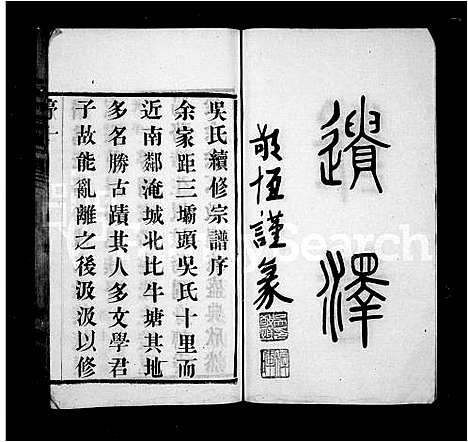 遺澤
敬恆謹篆
吳氏續修宗譜序
余家距三壩頭吳氏十里而
近南鄰淹城北比牛塘其地
多名勝古蹟其人多文學君
子故能亂離之後汲汲以修
序一
Search